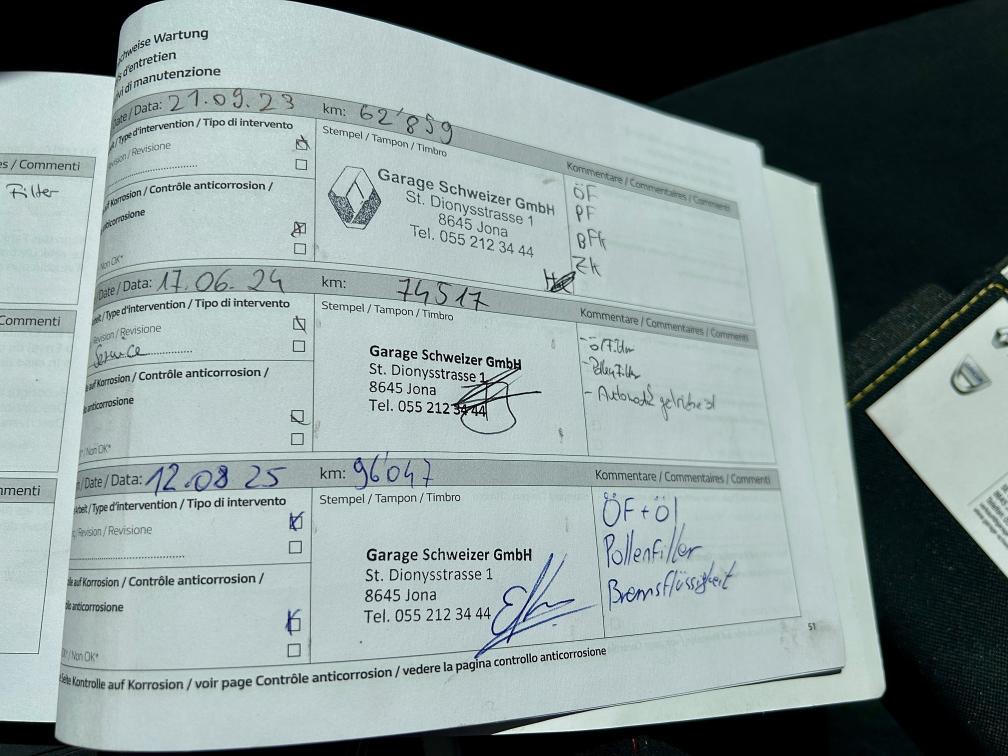 hweise Wartung
s d'entretien
vi di manutenzione
Date / Data: 21.09.23 km: 62'859
/ Type d'intervention / Tipo di intervento
vision / Revisione
auf Korrosion / Contrôle anticorrosion /
anticorrosione
Non OK*
Stempel / Tampon / Timbro
Garage Schweizer GmbH
St. Dionysstrasse 1
8645 Jona
Tel. 055 212 34 44
Kommentare / Commentaires / Commenti
ÖF
PF
BFk
ZK
Date / Data: 17.06.24 km: 74517
beit / Type d'intervention / Tipo di intervento
Revision / Revisione
Service
auf Korrosion / Contrôle anticorrosion /
anticorrosione
/ Non OK*
Stempel / Tampon / Timbro
Garage Schweizer GmbH
St. Dionysstrasse 1
8645 Jona
Tel. 055 212 34 44
Kommentare / Commentaires / Commenti
- ölfilter
- Pollenfilter
/ Date / Data: 12.08 25 km: 96'047
Arbeit / Type d'intervention / Tipo di intervento
Revision / Revisione
le auf Korrosion / Contrôle anticorrosion /
anticorrosione
/ Non OK*
Stempel / Tampon / Timbro
Garage Schweizer GmbH
St. Dionysstrasse 1
8645 Jona
Tel. 055 212 34 44
Kommentare / Commentaires / Commenti
ÖF + öl
Pollenfilter
Bremsflüssigkeit
51
Seite Kontrolle auf Korrosion / voir page Contrôle anticorrosion / vedere la pagina controllo anticorrosione
es / Commenti
Filter
Commenti
mmenti